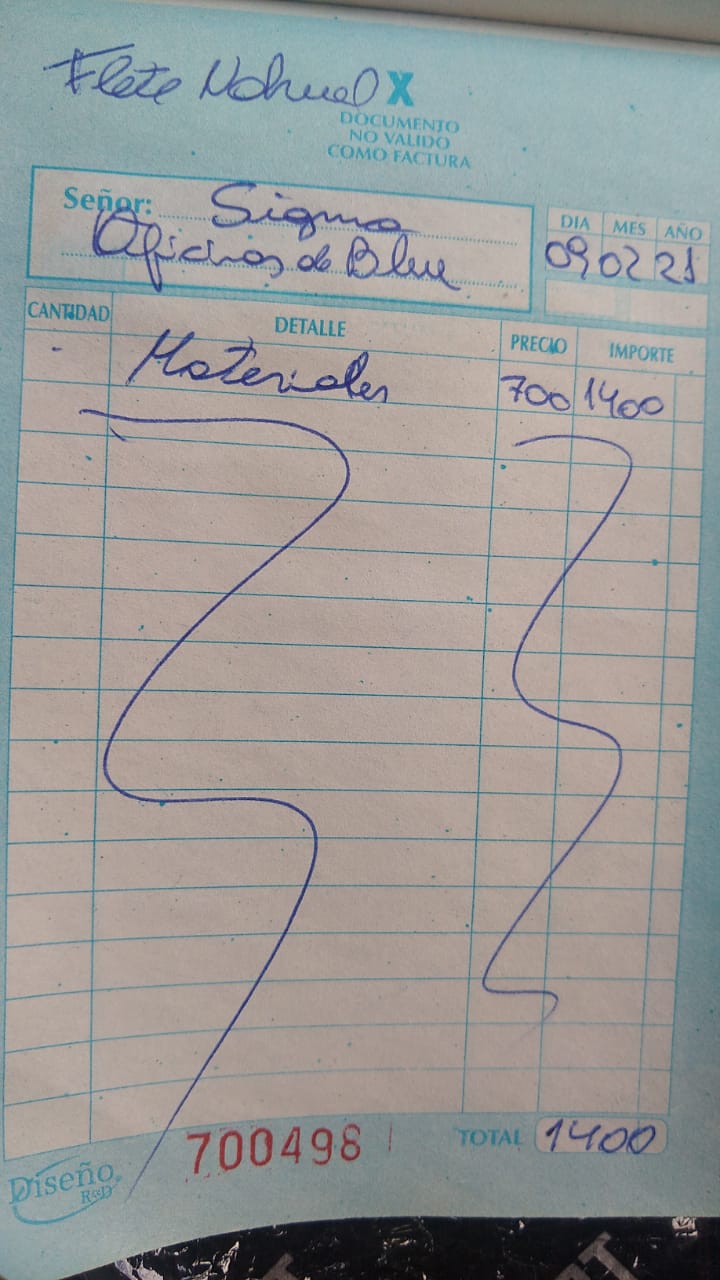 Flete Nahuel X
DOCUMENTO
NO VALIDO
COMO FACTURA
Señor: Sigma
Oficinas de Blue
DIA MES AÑO
09 02 21
CANTIDAD DETALLE PRECIO IMPORTE
- Materiales 700 1400
700498
TOTAL 1400
Diseño
R&D